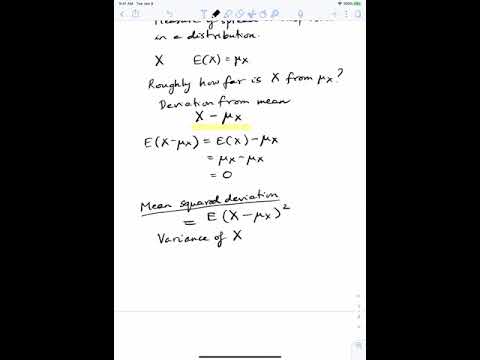 9:41 AM Tue Jan 9
Measure of spread
in a distribution.
X E(X) = μx
Roughly how far is X from μx?
Deviation from mean
X - μx
E(X-μx) = E(X) - μx
= μx - μx
= 0
Mean squared deviation
= E(X-μx)²
Variance of X